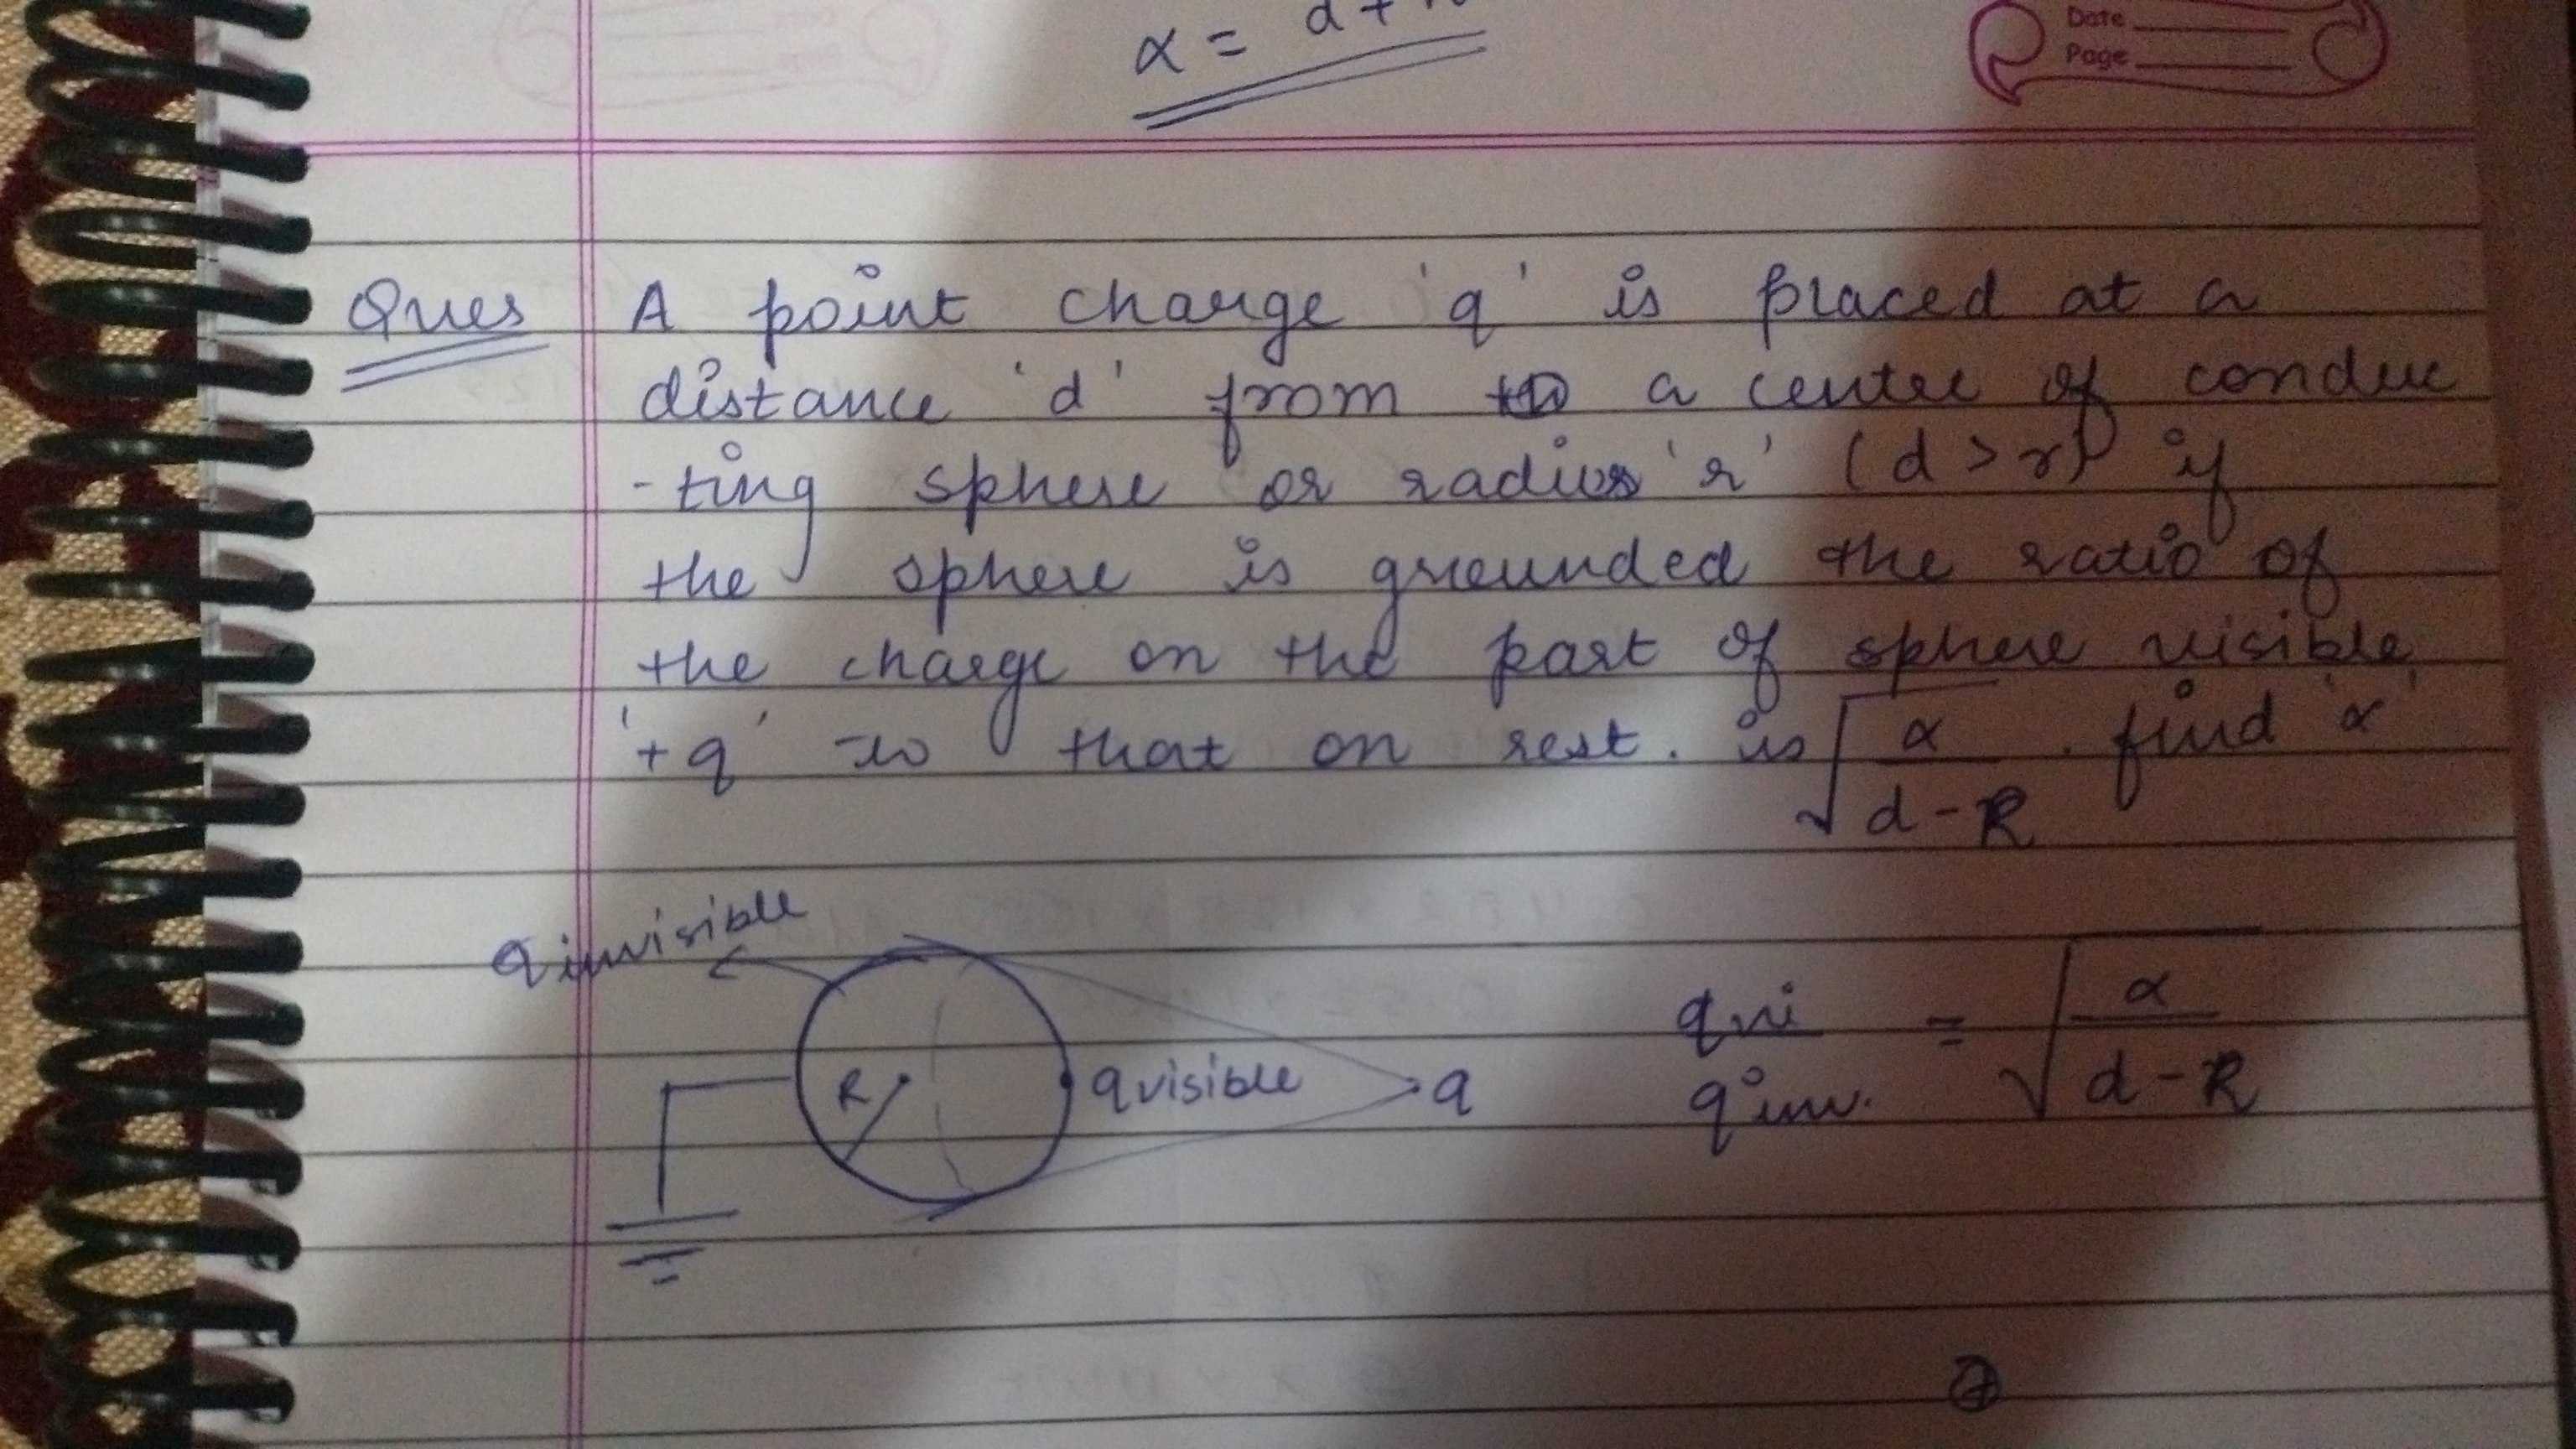 α =
Date
Page
Ques A point charge 'q' is placed at a
distance 'd' from a centre of conduc
-ting sphere or radius 'r' (d > r) if
the sphere is grounded the ratio of
the charge on the part of sphere visible
'+q' to that on rest. is √(α / (d-R)). find 'α'
q invisible
R
q visible
q
q vi / q inv. = √(α / (d-R))